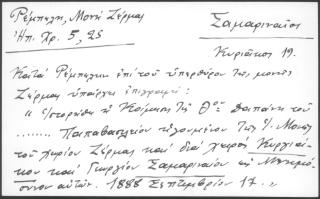 Ρέμπελη, Μονή Ζέρμας
Ἠπ. Χρ. 5, 25
Σαμαριναῖοι
Κυριάκος 19.
Κατά Ρέμπελην ἐπί τοῦ ὑπερθύρου τῆς μονῆς
Ζέρμας ὑπάρχει ἐπιγραφή:
"Ἱστορήθη ἡ Κοίμησις τῆς Θ/ου δαπάνῃ τοῦ
........ Παπαβασιλείου ἡγουμένου τῆς Ἱ. Μονῆς
τοῦ χωρίου Ζέρμας καί διά χειρός Κυργιά-
κου καί Γεωργίου Σαμαριναίου εἰς Μνημό-
συνον αὐτῶν. 1888 Σεπτεμβρίου 17."